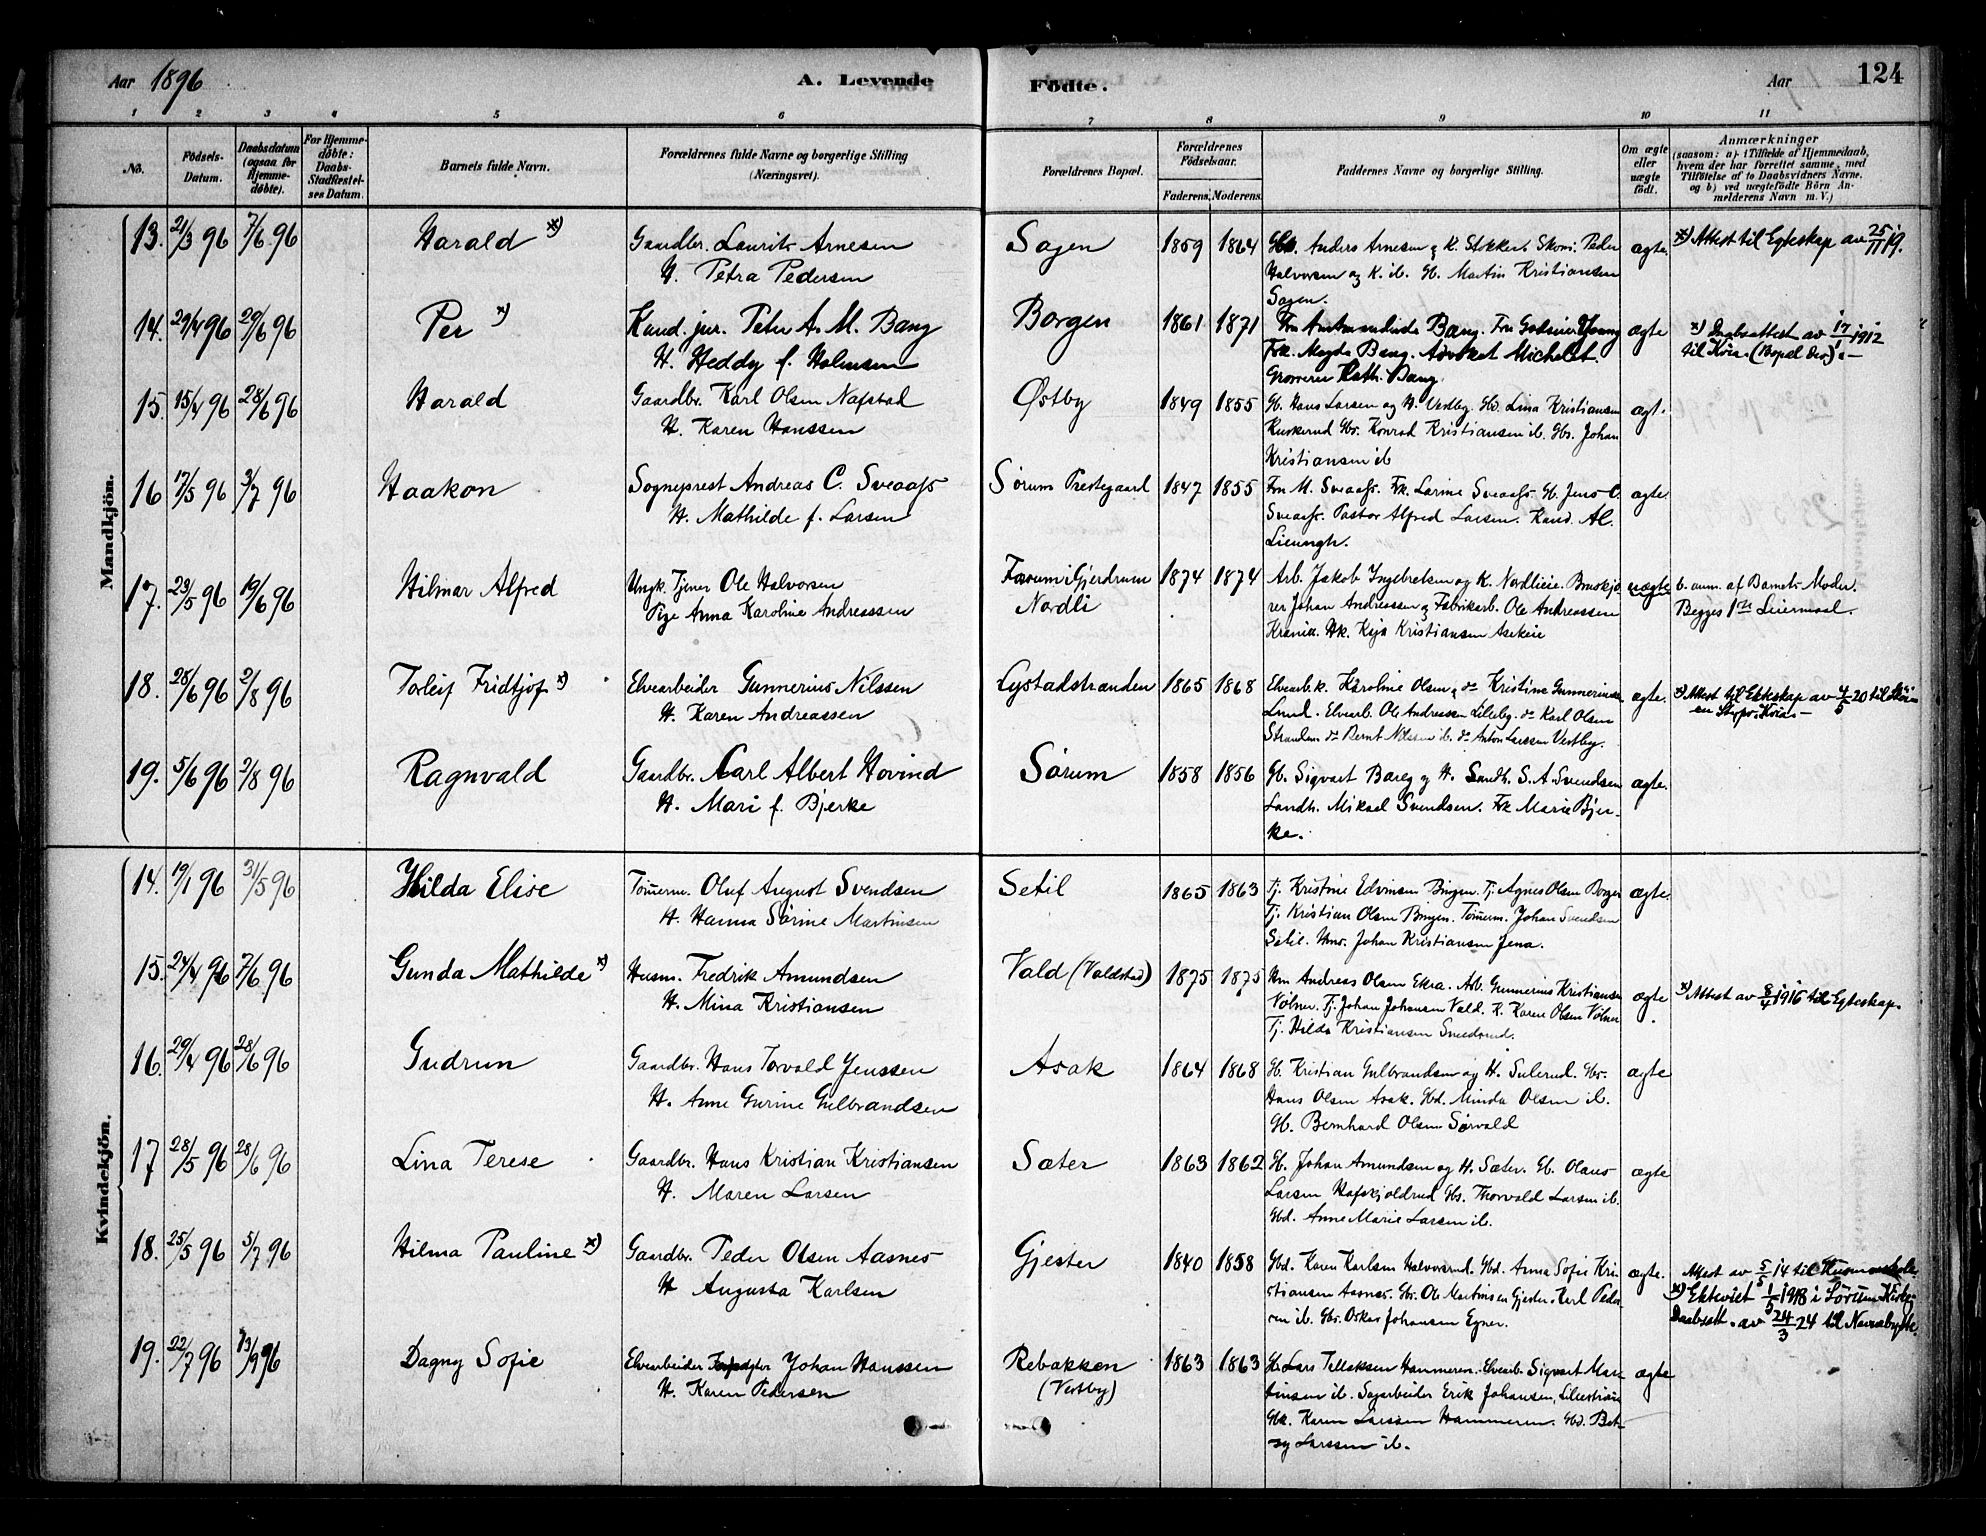 Aar 1896
A. Levende
Fødte.
Aar
124
1 2 3 4 5 6 7 8 9 10 11
No.
Fødsels-
Datum.
Daabsdatum
(ogsaa for
Hjemme-
døbte).
For Hjemme-
døbte:
Daabs-
Stadfæstel-
ses Datum.
Barnets fulde Navn.
Forældrenes fulde Navne og borgerlige Stilling
(Næringsvei).
Forældrenes Bopæl.
Forældrenes
Fødselsaar.
Faderens. Moderens.
Faddernes Navne og borgerlige Stilling.
Om ægte
eller
uægte
født.
Anmærkninger
(saasom: a) i Tilfælde af Hjemmedaab,
hvem der har forrettet samme, med
Tilføielse af to Daabsvidners Navne.
og b) ved uægtefødte Børn An-
melderens Navn m. V.)
Mandkjön.
13. 21/3 96 7/6 96 Harald x) Gaardbr. Laurits Arnesen Sagen 1859 1864 Gbs. Anders Arnesen og K. Stokker. Skom. Peder ægte. x) Attest til Egteskap av 25/11 19.
H. Petra Pedersen Halvorsen og K. ib. Gb. Martin Kristiansen
Sagen.
14. 29/4 96 29/6 96 Per x) Kand. jur. Peter A. M. Bang Borgen 1861 1871 Fru Amtmandinde Bang. Fru Godseier ægte x) Daabsattest av 17/1 1912
H. Heddy f. Holmsen Frk. Magda Bang. Advokat Michelet. til Kria. (Bopæl der).-
Grosserer Kath. Bang.
15. 15/4 96 28/6 96 Harald Gaardbr. Karl Olsen Nafstad Østby 1849 1855 Gb. Hans Larsen og H. Vestby. Gbd. Lina Kristiansen ægt.
H. Karen Hanssen Kuskerud Gbs. Konrad Kristiansen ib. Gbs. Johan
Kristiansen ib
16 17/5 96 3/7 96 Haakon Sogneprest Andreas C. Sveaass Sørum Prestegaard 1847 1855 Fru M. Sveaass. Frk. Larine Sveaass. Gb. Jens C. ægte.
H. Mathilde f. Larsen Sveaass. Pastor Alfred Larsen. Kand. Al.
Lieungh.
17. 23/5 96 19/6 96 Hilmar Alfred Ungk. Tjener Ole Halvorsen Farum i Gjerdrum 1874 1874 Arb. Jakob Ingebretsen og K. Nordlieie. uægte b. anm. af Barnets Moder.
Pige Anna Karoline Andreassen Nordli Johan Andreassen og Fabrikarb. Ole Andreassen Begges 1ste Leiermaal.
Kristiansen
18. 28/6 96 2/8 96 Torleif Fridtjof x) Elvearbeider Gunnerius Nilssen Lystadstranden 1865 1868 Elvearb.k. Karoline Olsen, do Kristine Gunneriusen ægte. x) Attest til Ekteskap av 4/5 20 til
H. Karen Andreassen Lund. Elvearb. Ole Andreassen Lilleby. do Karl Olsen
Stranden do Bernt Nilssen ib. do Anton Larssen Vestby.
19. 5/6 96 2/8 96 Ragnvald Gaardbr. Carl Albert Hovind Sørum 1858 1856 Gb. Sigvart Berg og H. Landh. S. A. Svendsen ægte.
H. Mari f. Bjerke Landh. Mikael Svendsen. Frk Marie Bjer-
ke.
Kvindekjön.
14. 19/1 96 31/5 96 Hilda Elise Tømerm. Oluf August Svendsen Setil 1865 1863 Tj. Kristine Edvinsen Bingen. Tj. Agnes Olsen Borgen ægte.
H. Hanna Sørine Martinsen Tj. Kristian Olsen Bingen. Tømerm. Johan Svendsen
Setil. Johan Kristiansen Jena.
15. 24/4 96 7/6 96 Gunda Mathilde x) Husm. Fredrik Amundsen Vald (Valdstad) 1875 1875 Hm Andreas Olsen Ekra. Arb. Gunnerius Kristiansen ægte. x) Attest av 8/4 1916 til Egteskap.
H. Mina Kristiansen Vølner. Tj. Johan Johansen Vald. K. Karen Olsen Vølner
Tj. Hilda Kristiansen Smedsrud.
16. 29/4 96 28/6 96 Gudrun Gaardbr. Hans Torvald Jenssen Asak 1864 1868 Gb. Kristian Gulbrandsen og H. Sulerud. Gbs. ægte
H. Anne Gurine Gulbrandsen Hans Olsen Asak. Gbd. Minda Olsen ib.
Gb. Bernhard Olsen Sørvald
17 28/5 96 28/6 96 Lina Terese Gaardbr. Hans Kristian Kristiansen Sæter 1863 1862 Gb. Johan Amundsen og H. Sæter. Gb. Olaus ægte
H. Maren Larsen Larsen Hafskjoldrud Gbs. Thorvald Larsen ib.
Gbd. Anne Marie Larsen ib.
18. 25/5 96 5/7 96 Hilma Pauline x) Gaardbr. Peder Olsen Aasnes Gjester 1840 1858 Gbd. Karen Karlsen Halvorsrud. Gbd. Anna Sofie Kri- ægte. Attest av 5/5 14 til
H Augusta Karlsen stiansen Aasnes. Gbs. Ole Martinsen Gjester. Karl Peder- x) Ekteviet 1/5 1918 i Sørum Kirke.
sen ib. Gbs. Oskar Johansen Egner. Daabsatt. av 24/3 24 til Navnebytte.
19. 22/7 96 13/9 96 Dagny Sofie Elvearbeider Johan Hanssen Rebakken 1863 1863 Gb Lars Tellefsen Hammeren. Elvearb. Sigvart Mar- ægte
H. Karen Pedersen (Vestby) tinsen ib. Sagarbeider Erik Johansen,
Gbk. Karen Larssen Hammeren. Gbd. Bet-
sy Larssen ib.